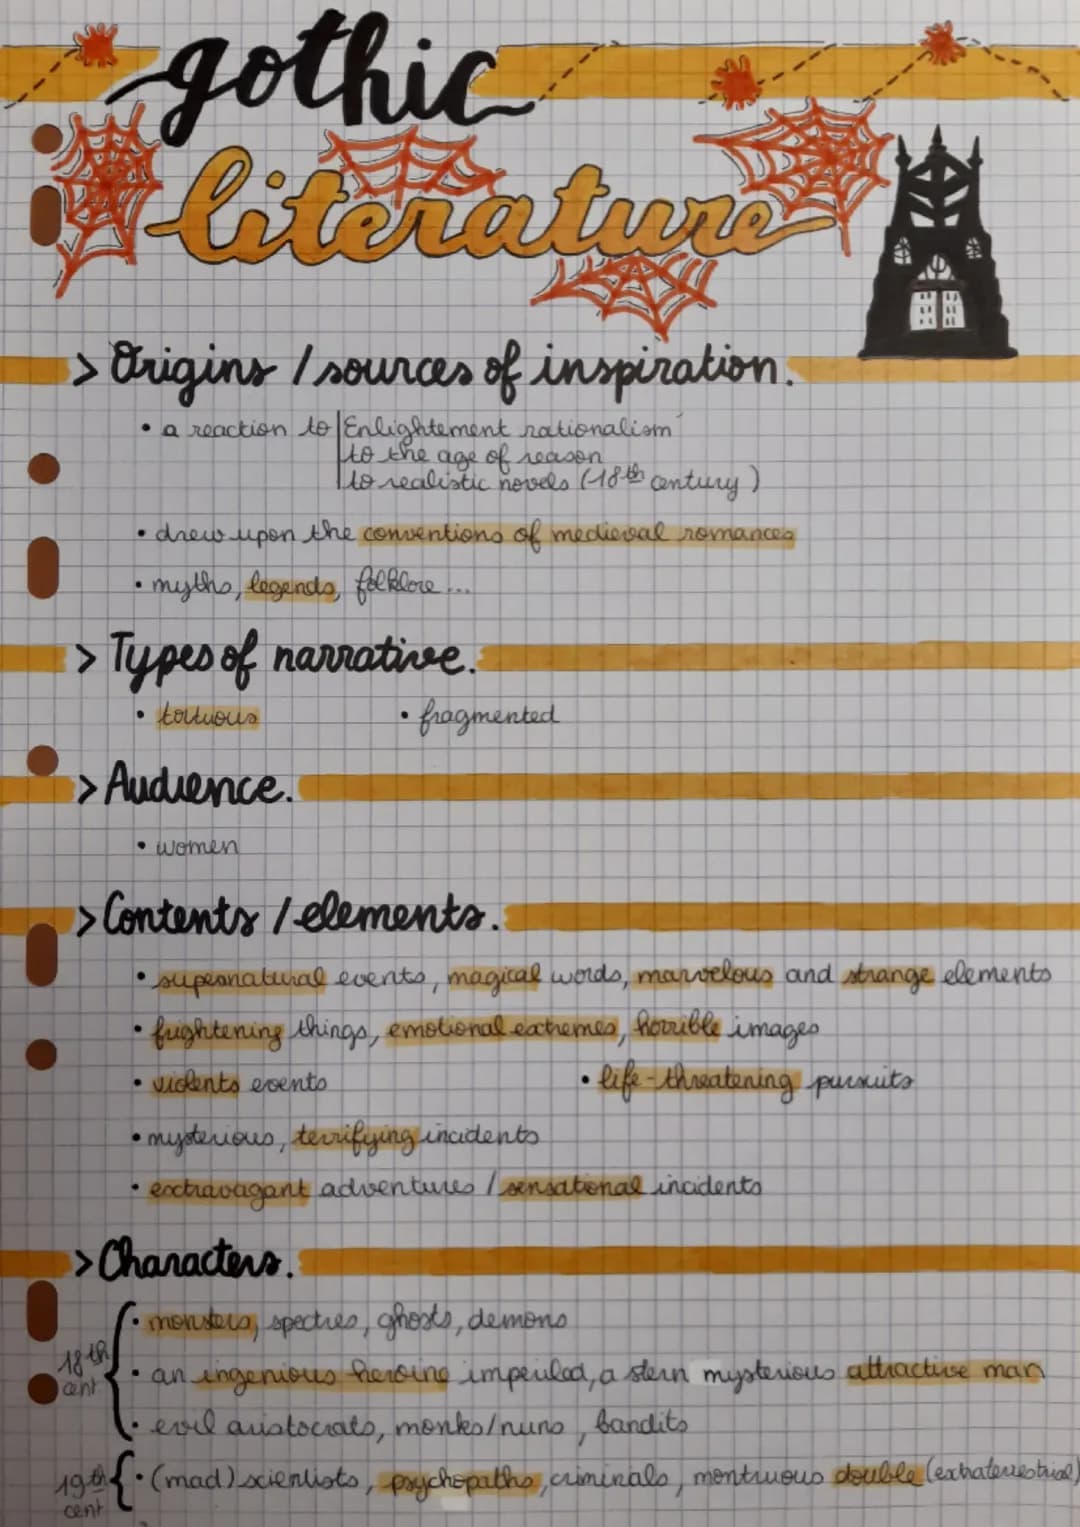 gothic
literature
> Origins / sources of inspiration.
• a reaction to Enlightement rationalism
to the age of reason
to realistic novels (18th century)
• drew upon the conventions of medieval romances
• myths, legends, folklore...
> Types of narrative.
• tortuous • fragmented
> Audience.
• women
> Contents / elements.
• supernatural events, magical words, marvelous and strange elements
• frightening things, emotional extremes, horrible images
• violents events • life-threatening pursuits
• mysterious, terrifying incidents
• extravagant adventures / sensational incidents
> Characters.
18th cent
• monsters, spectres, ghosts, demons
• an ingenious heroine imperiled, a stern mysterious attractive man
• evil aristocrats, monks/nuns, bandits
19th cent
• (mad) scientists, psychopaths, criminals, montruous double (extraterrestrial)